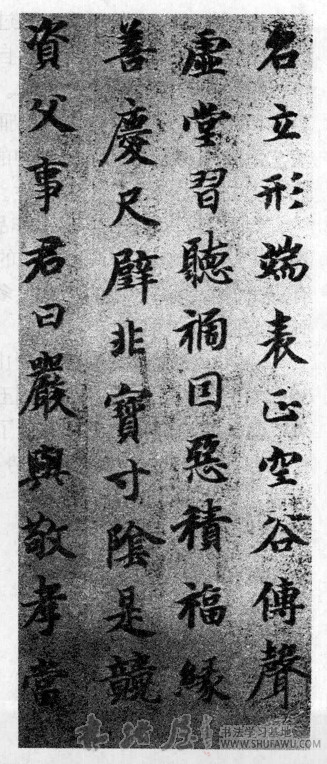 名立形端表正空谷傳聲
虛堂習聽禍因惡積福緣
善慶尺璧非寶寸陰是競
資父事君曰嚴與敬孝當
书法学习基地
WWW.SHUFAWU.COM